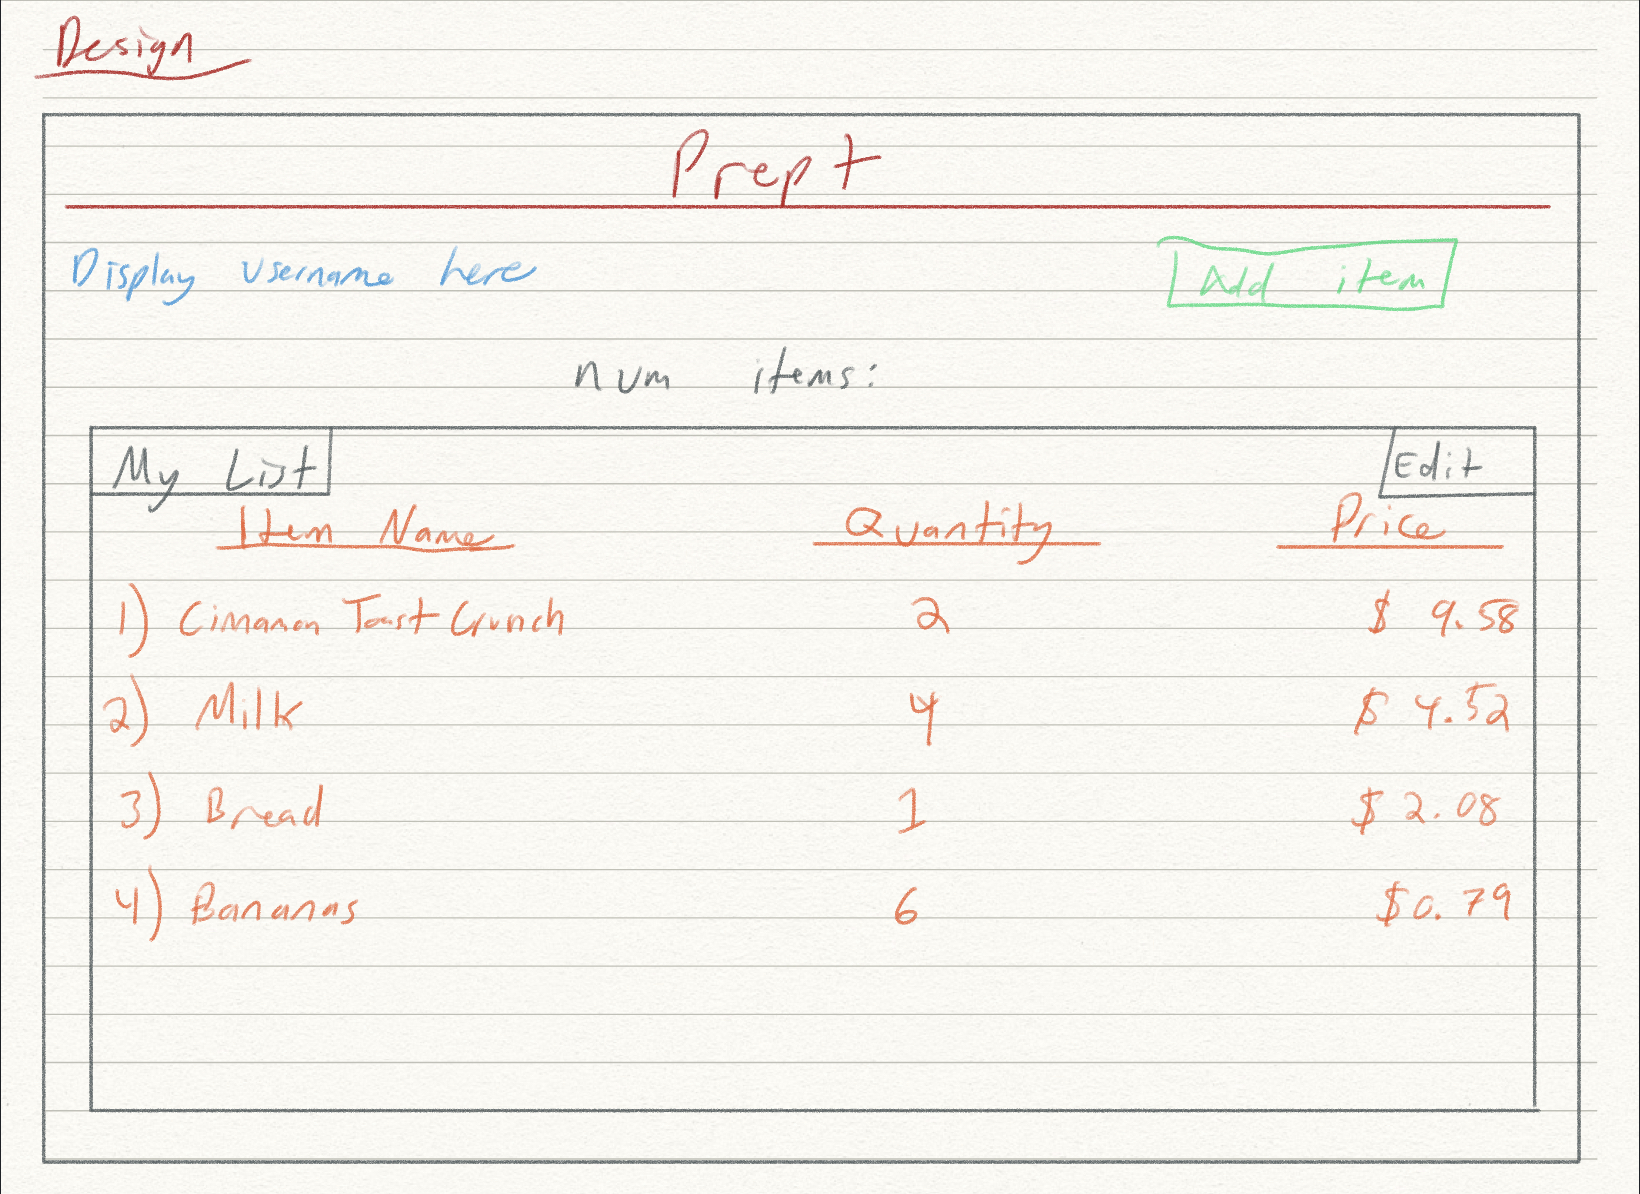 Design
Prept
Display username here Add item
num items:
My List Edit
Item Name Quantity Price
1) Cimanon Toast Crunch 2 $ 9.58
2) Milk 4 $ 4.52
3) Bread 1 $ 2.08
4) Bananas 6 $0.79